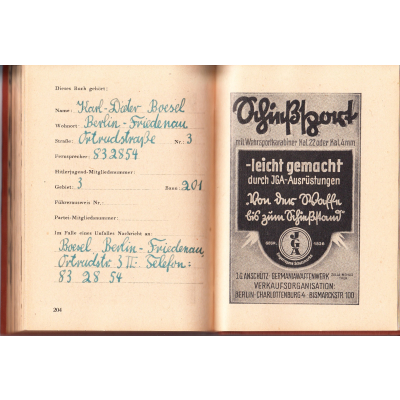 Dieses Buch gehört:
Name: Karl-Dieter Boesel
Wohnort: Berlin-Friedenau
Straße: Ortrudstraße Nr. 3
Fernsprecher: 832854
Hitlerjugend-Mitgliedsnummer:
Gebiet: 3 Bann: 201
Führerausweis Nr.
Partei-Mitgliedsnummer:
Im Falle eines Unfalles Nachricht an:
Boesel Berlin-Friedenau,
Ortrudstr. 3 II. Telefon:
83 28 54
204
Schießsport
mit Wehrsportkarabiner Kal. 22 oder Kal. 4mm
-leicht gemacht
durch JGA-Ausrüstungen
Von der Waffe
bis zum Schießstand
JGA
J.G. ANSCHÜTZ · GERMANIAWAFFENWERK
VERKAUFSORGANISATION:
BERLIN-CHARLOTTENBURG 4 BISMARCKSTR. 100